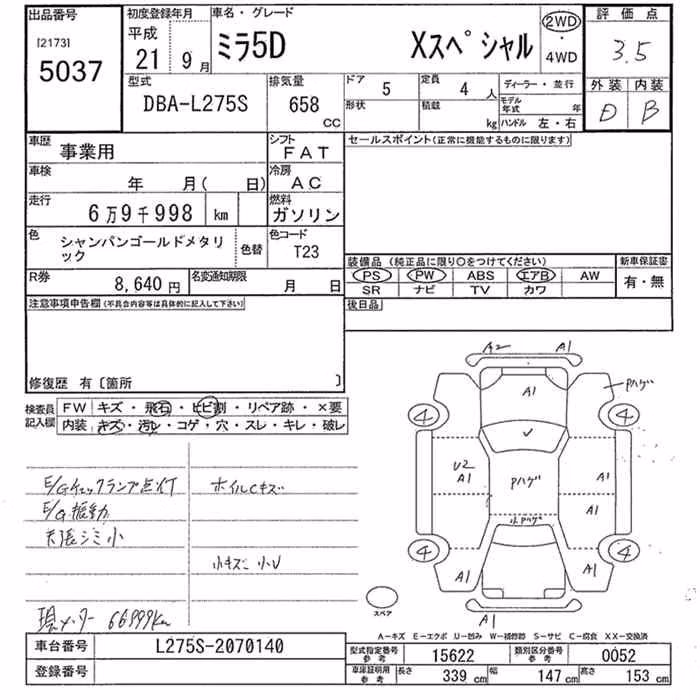 出品番号
[2173]
5037
初度登録年月
平成
21 9月
車名・グレード
ミラ5D Xスペシャル
2WD
・
4WD
評価点
3.5
外装 内装
D B
型式
DBA-L275S
排気量
658
CC
ドア
5
定員
4人
形状
積載
kg
ディーラー・並行
モデル年式 年
ハンドル 左・右
車歴
事業用
シフト
FAT
車検
年 月( 日)
冷房
AC
走行
6万9千998 km
燃料
ガソリン
色
シャンパンゴールドメタリ
ック
色替
色コード
T23
R券
8,640円
名変通知期限
月 日
セールスポイント(正常に機能するものに限ります)
装備品(純正品に限り○をつけてください)
PS PW ABS エアB AW
SR ナビ TV カワ
新車保証書
有・無
後日品
注意事項申告欄(不具合内容等は具体的に記入して下さい)
修復歴 有〔箇所 〕
検査員
記入欄
FW キズ・飛石・ヒビ割・リペア跡・×要
内装 キズ・汚レ・コゲ・穴・スレ・キレ・破レ
E/Gチェックランプ点灯
E/G振動
天張シミ小
ホイルCキズ
小キズ 小U
現メーター 66999km
A2 A1
A1
Pハゲ
4 4
U2
A1
Pハゲ
A1
A1
小Pハゲ
4 4
A1
A1
A1
スペア
A－キズ E－エクボ U－凹み W－補修跡 S－サビ C－腐食 XX－交換済
車台番号
L275S-2070140
登録番号
型式指定番号
参考
15622
類別区分番号
参考
0052
車庫証明用
参考
長さ
339 cm
幅
147 cm
高さ
153 cm